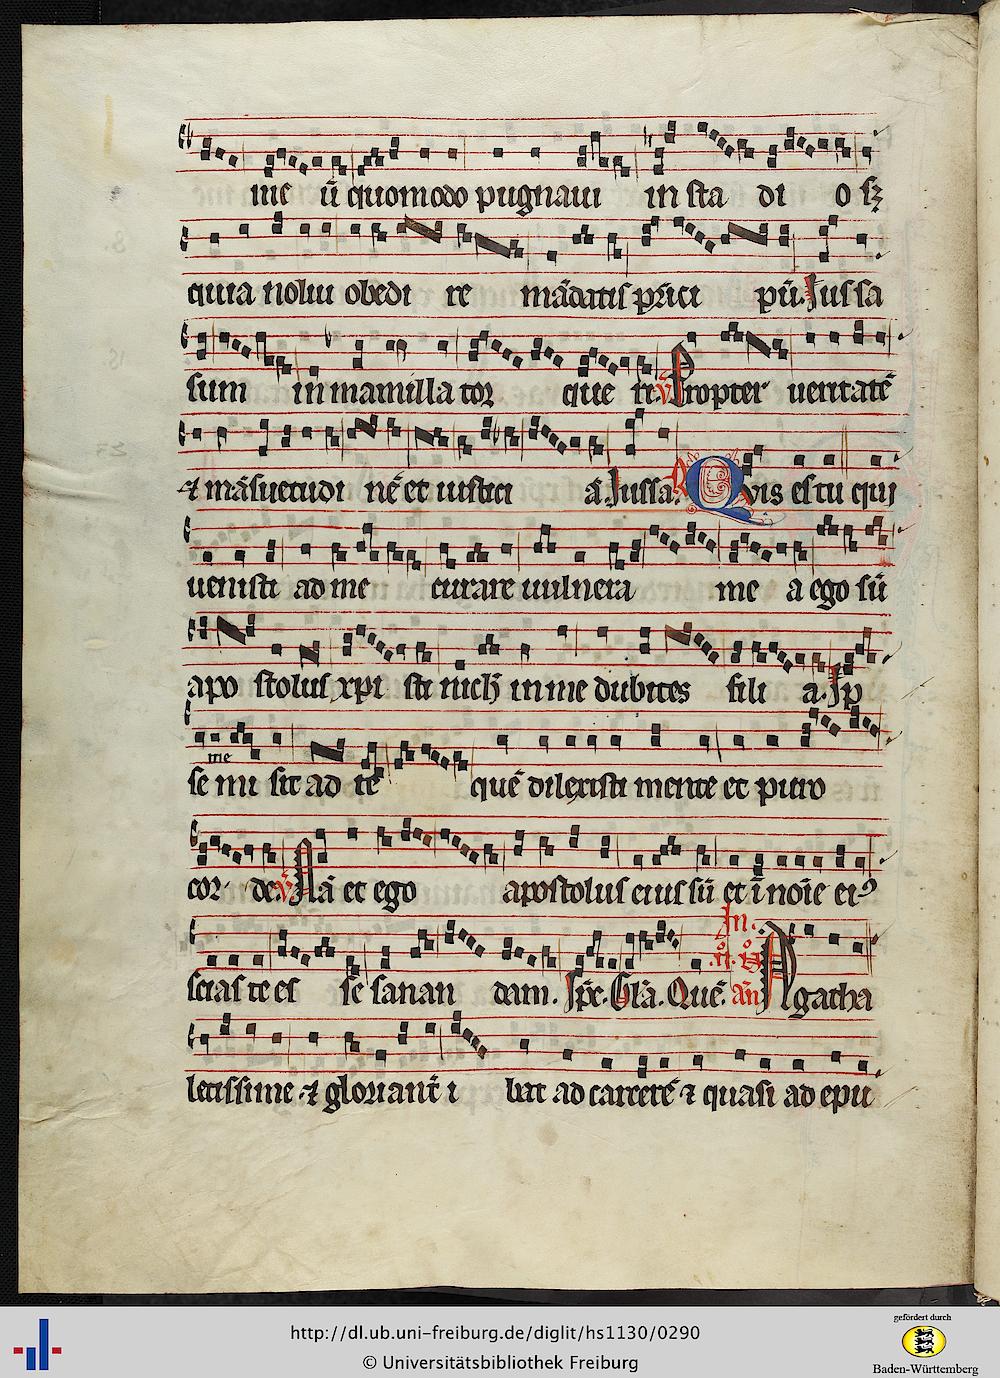 me ū quomodo pugnaui in sta di o sꝫ
quia nolui obedi re mādatis pͥnci pū. Jussa
sum in mamilla tor que ri. v Propter ueritatē
⁊ māsuetudi nē et iustici ā. Jussa. R Quis es tu qui
uenisti ad me curare uulnera me a ego sū
apo stolus xpi sti nich in me dubites fili a. Jp
me
se mi sit ad te quē dilexisti mente et puro
cor de. v Nā et ego apostolus eius sū et ī noīe ei⁹
In
scias te es se sanan dam. Jpe. Glā. Quē. an Agatha
letissime ⁊ gloriant i bat ad carcerē ⁊ quasi ad epu
http://dl.ub.uni-freiburg.de/diglit/hs1130/0290
© Universitätsbibliothek Freiburg
gefördert durch
Baden-Württemberg